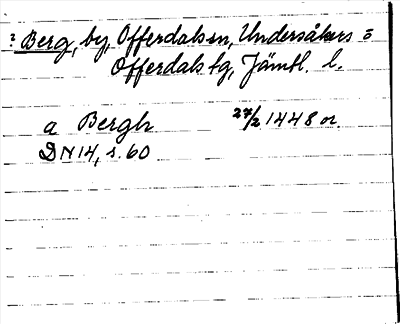 ? Berg, by, Offerdals sn, Undersåkers o
Offerdals tg, Jämtl. l.
a Bergh 27/2 1448 or.
DN 14, s. 60